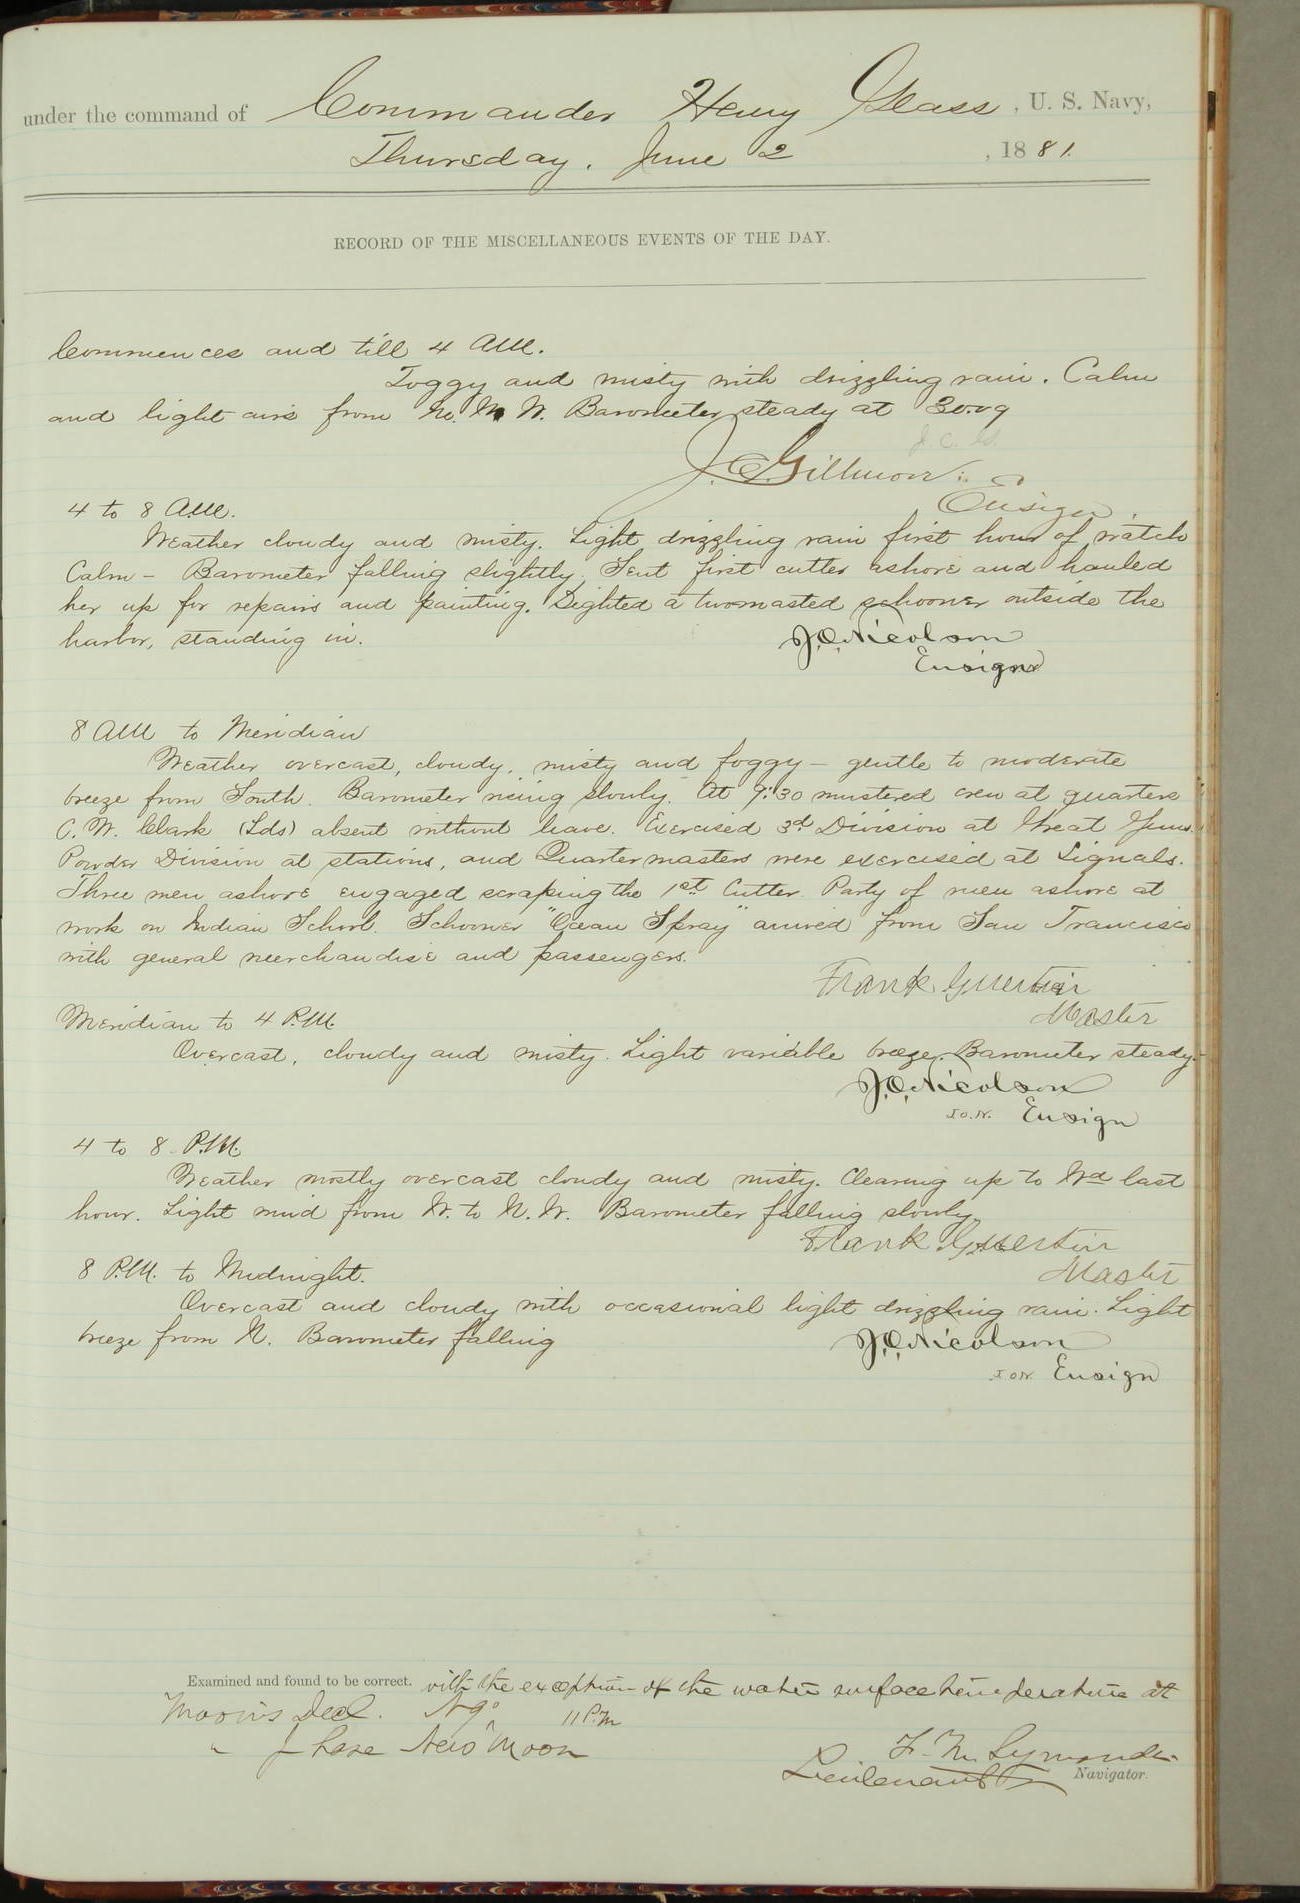 under the command of Commander Henry Glass, U. S. Navy,
Thursday, June 2, 1881.
RECORD OF THE MISCELLANEOUS EVENTS OF THE DAY.
Commences and till 4 AM.
Foggy and misty with drizzling rain. Calm
and light airs from N. N. W. Barometer steady at 30.09
J. C. G.
J. C. Gillmore
Ensign.
4 to 8 A.M.
Weather cloudy and misty. Light drizzling rain first hour of watch
Calm – Barometer falling slightly. Sent first cutter ashore and hauled
her up for repairs and painting. Sighted a two masted schooner outside the
harbor, standing in.
J.O. Nicolson
Ensign
8 AM to Meridian
Weather overcast, cloudy, misty and foggy – gentle to moderate
breeze from South. Barometer rising slowly. At 9:30 mustered crew at quarters
C. W. Clark (Lds) absent without leave. Exercised 3d Division at Great Guns.
Powder Division at stations, and Quartermasters were exercised at Signals.
Three men ashore engaged scraping the 1st Cutter. Party of men ashore at
work on Indian School. Schooner "Ocean Spray" arrived from San Francisco
with general merchandise and passengers.
Frank Guertin
Master
Meridian to 4 P.M.
Overcast, cloudy and misty. Light variable breeze. Barometer steady.
J.O. Nicolson
J.O.N. Ensign
4 to 8 P.M.
Weather mostly overcast cloudy and misty. Clearing up to Wd last
hour. Light wind from W. to N. W. Barometer falling slowly
Frank Guertin
Master
8 P.M. to Midnight.
Overcast and cloudy with occasional light drizzling rain. Light
breeze from N. Barometer falling
J.O. Nicolson
J.O.N. Ensign
Examined and found to be correct. with the exception of the water surface temperature at
Moon's Decl. N 9° 11 P.M
" Phase New Moon
F. M. Symonds
Lieutenant Navigator.